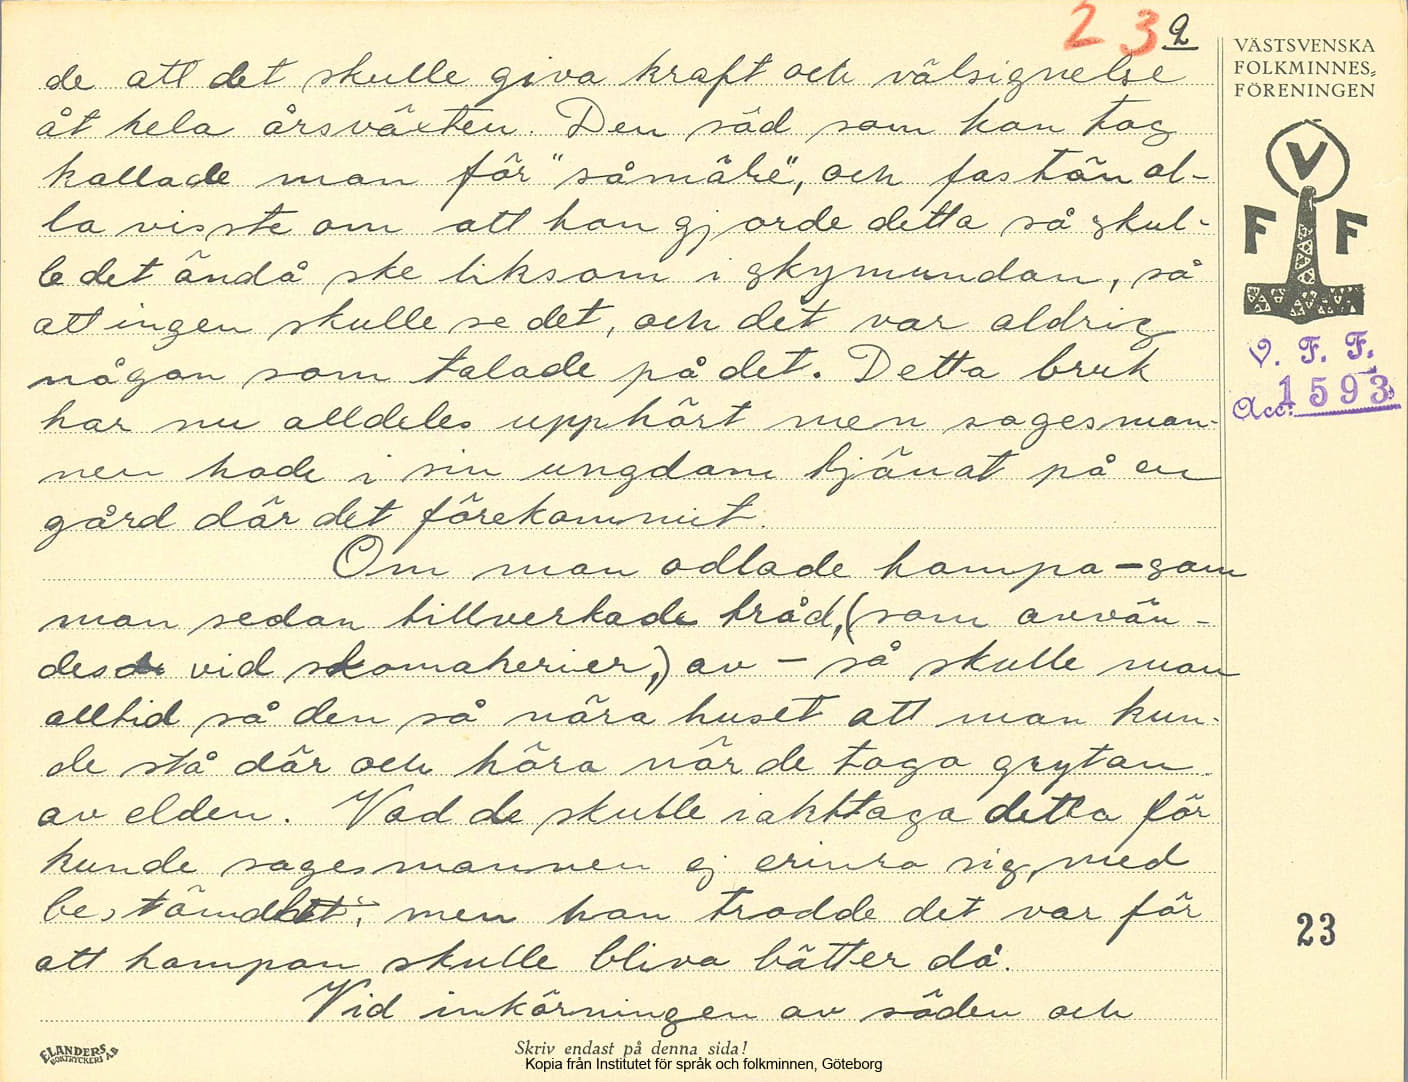 23 2
VÄSTSVENSKA
FOLKMINNES-
FÖRENINGEN
V
F F
V. F. F.
Acc: 1593
de att det skulle giva kraft och välsignelse
åt hela årsväxten. Den säd som han tog
kallade man för "såmäle", och fastän al-
la visste om att han gjorde detta så skul-
le det ändå ske liksom i skymundan, så
att ingen skulle se det, och det var aldrig
någon som talade på det. Detta bruk
har nu alldeles upphört men sagesman-
nen hade i sin ungdom tjänat på en
gård där det förekommit.
Om man odlade hampa – som
man sedan tillverkade tråd, (som använ-
des vid skomakerier,) av – så skulle man
alltid så den så nära huset att man kun-
de stå där och höra när de toga grytan
av elden. Vad de skulle iakttaga detta för
kunde sagesmannen ej erinra sig, med
bestämdhet, men han trodde det var för
att hampan skulle bliva bätter då.
Vid inkörningen av säden och
23
ELANDERS
BOKTRYCKERI A-B
Skriv endast på denna sida!
Kopia från Institutet för språk och folkminnen, Göteborg